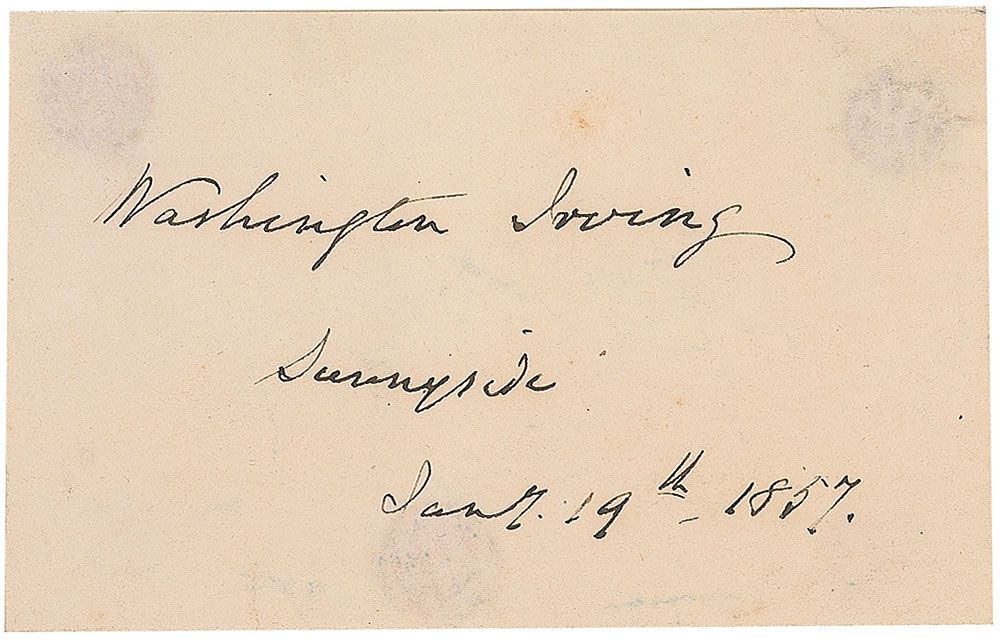 Washington Irving
Sunnyside
Jany. 19th 1857.